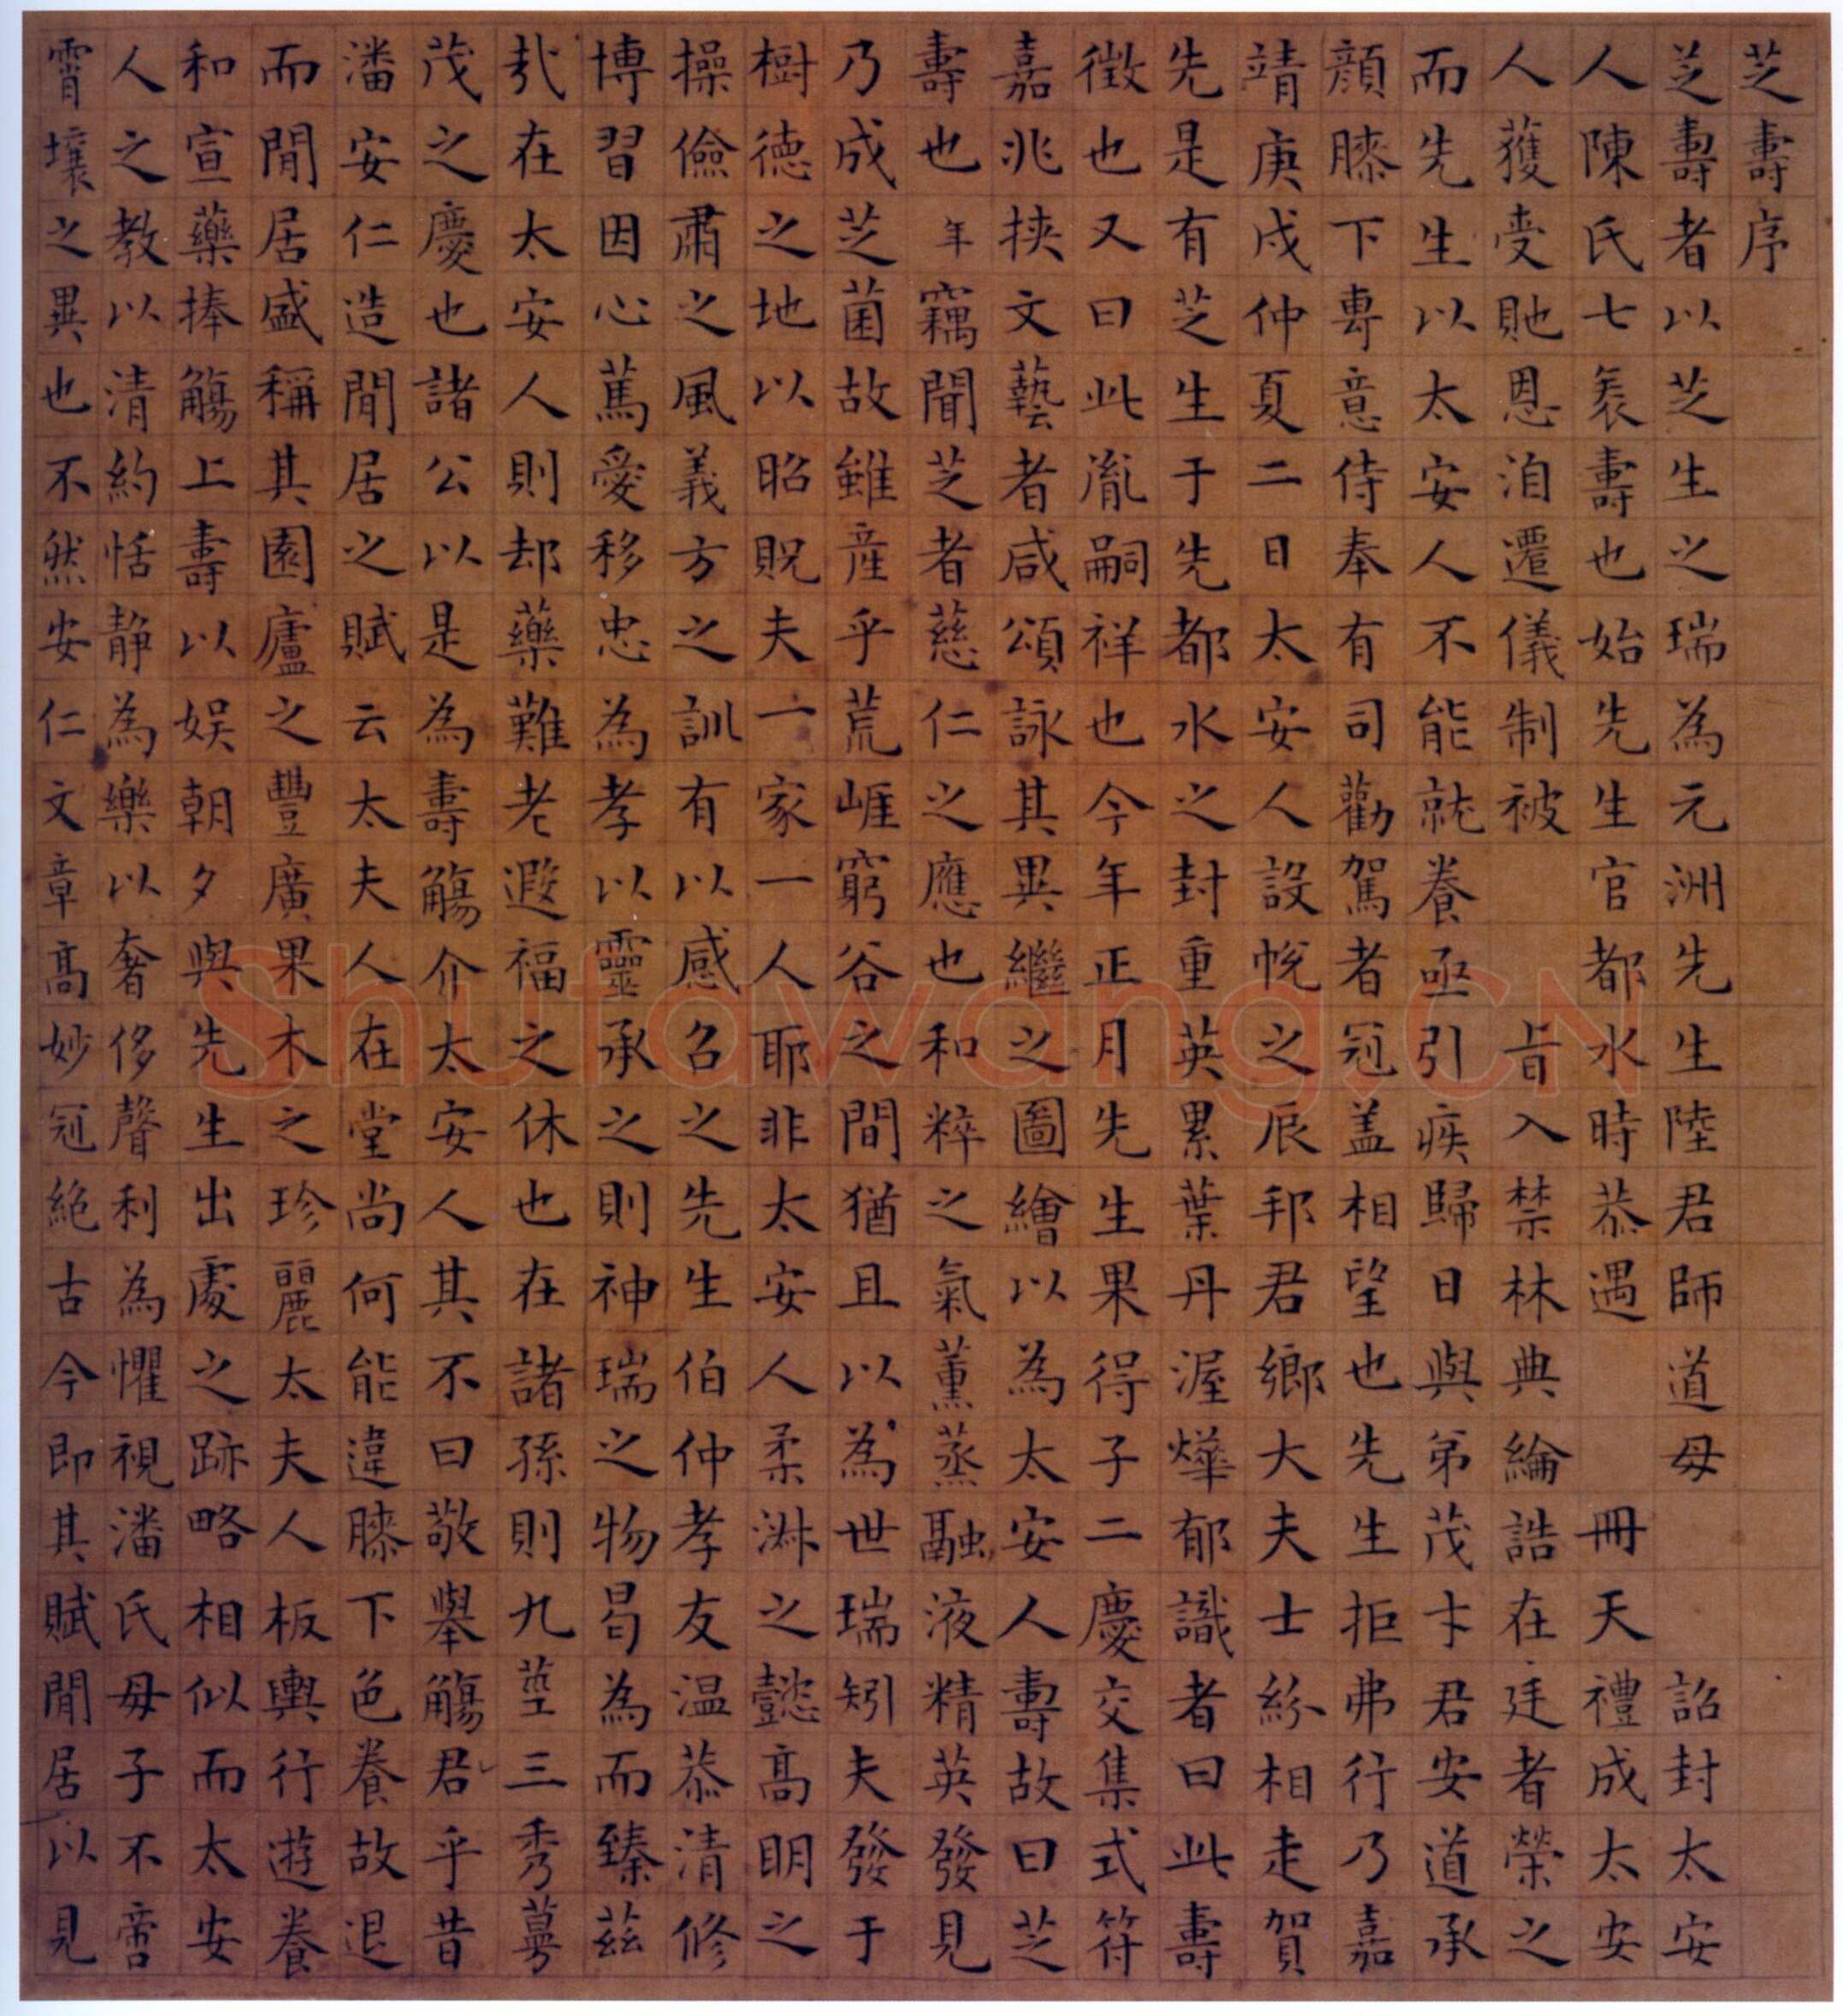 芝壽序
芝壽者以芝生之瑞為元洲先生陸君師道母詔封太安
人陳氏七袠壽也始先生官都水時恭遇冊天禮成太安
人獲受貤恩洎遷儀制被旨入禁林典綸誥在廷者榮之
而先生以太安人不能就養亟引疾歸日與弟茂卞君安道承
顔膝下專意侍奉有司勸駕者冠盖相望也先生拒弗行乃嘉
靖庚戌仲夏二日太安人設帨之辰邦君鄉大夫士紛相走賀
先是有芝生于先都水之封重英累葉丹渥燁郁識者曰此壽
徵也又曰此胤嗣祥也今年正月先生果得子二慶交集式符
嘉兆挾文藝者咸頌詠其異繼之圖繪以為太安人壽故曰芝
壽也年竊聞芝者慈仁之應也和粹之氣薰蒸融液精英發見
乃成芝菌故雖産乎荒崕窮谷之間猶且以為世瑞矧夫發于
樹德之地以昭貺夫一家一人耶非太安人柔淋之懿高明之
操儉肅之風義方之訓有以感召之先生伯仲孝友温恭清修
博習因心篤愛移忠為孝以靈承之則神瑞之物曷為而臻茲
㢤在太安人則却藥難老遐福之休也在諸孫則九莖三秀蕚
茂之慶也諸公以是為壽觴介太安人其不曰敬舉觴君乎昔
潘安仁造閒居之賦云太夫人在堂尚何能違膝下色養故退
而閒居盛稱其園廬之豐廣果木之珍麗太夫人板輿行遊養
和宣藥捧觴上壽以娱朝夕與先生出處之跡略相似而太安
人之教以清約恬静為樂以奢侈聲利為懼視潘氏母子不啻
霄壤之異也不然安仁文章高妙冠絶古今即其賦閒居以見
Shufawang.CN